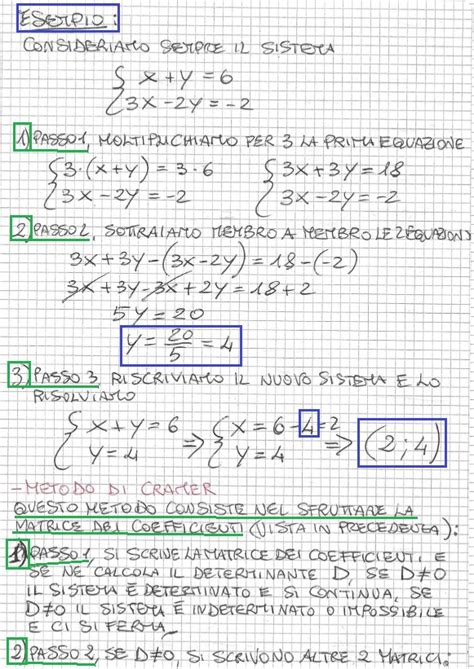 ESEMPIO:
CONSIDERIAMO SEMPRE IL SISTEMA
{ x+y=6
{ 3x-2y=-2
1) PASSO 1, MOLTIPLICHIAMO PER 3 LA PRIMA EQUAZIONE
{ 3·(x+y)=3·6 { 3x+3y=18
{ 3x-2y=-2 { 3x-2y=-2
2) PASSO 2, SOTTRAIAMO MEMBRO A MEMBRO LE 2 EQUAZIONI
3x+3y-(3x-2y)=18-(-2)
3x+3y-3x+2y=18+2
5y=20
y=20/5=4
3) PASSO 3, RISCRIVIAMO IL NUOVO SISTEMA E LO
RISOLVIAMO
{ x+y=6 ⇒ { x=6-4=2 ⇒ (2;4)
{ y=4 { y=4
-METODO DI CRAMER
QUESTO METODO CONSISTE NEL SFRUTTARE LA
MATRICE DEI COEFFICIENTI (VISTA IN PRECEDENZA):
1) PASSO 1, SI SCRIVE LA MATRICE DEI COEFFICIENTI E
SE NE CALCOLA IL DETERMINANTE D, SE D≠0
IL SISTEMA È DETERMINATO E SI CONTINUA, SE
D≠0 IL SISTEMA È INDETERMINATO O IMPOSSIBILE
E CI SI FERMA
2) PASSO 2, SE D≠0, SI SCRIVONO ALTRE 2 MATRICI: